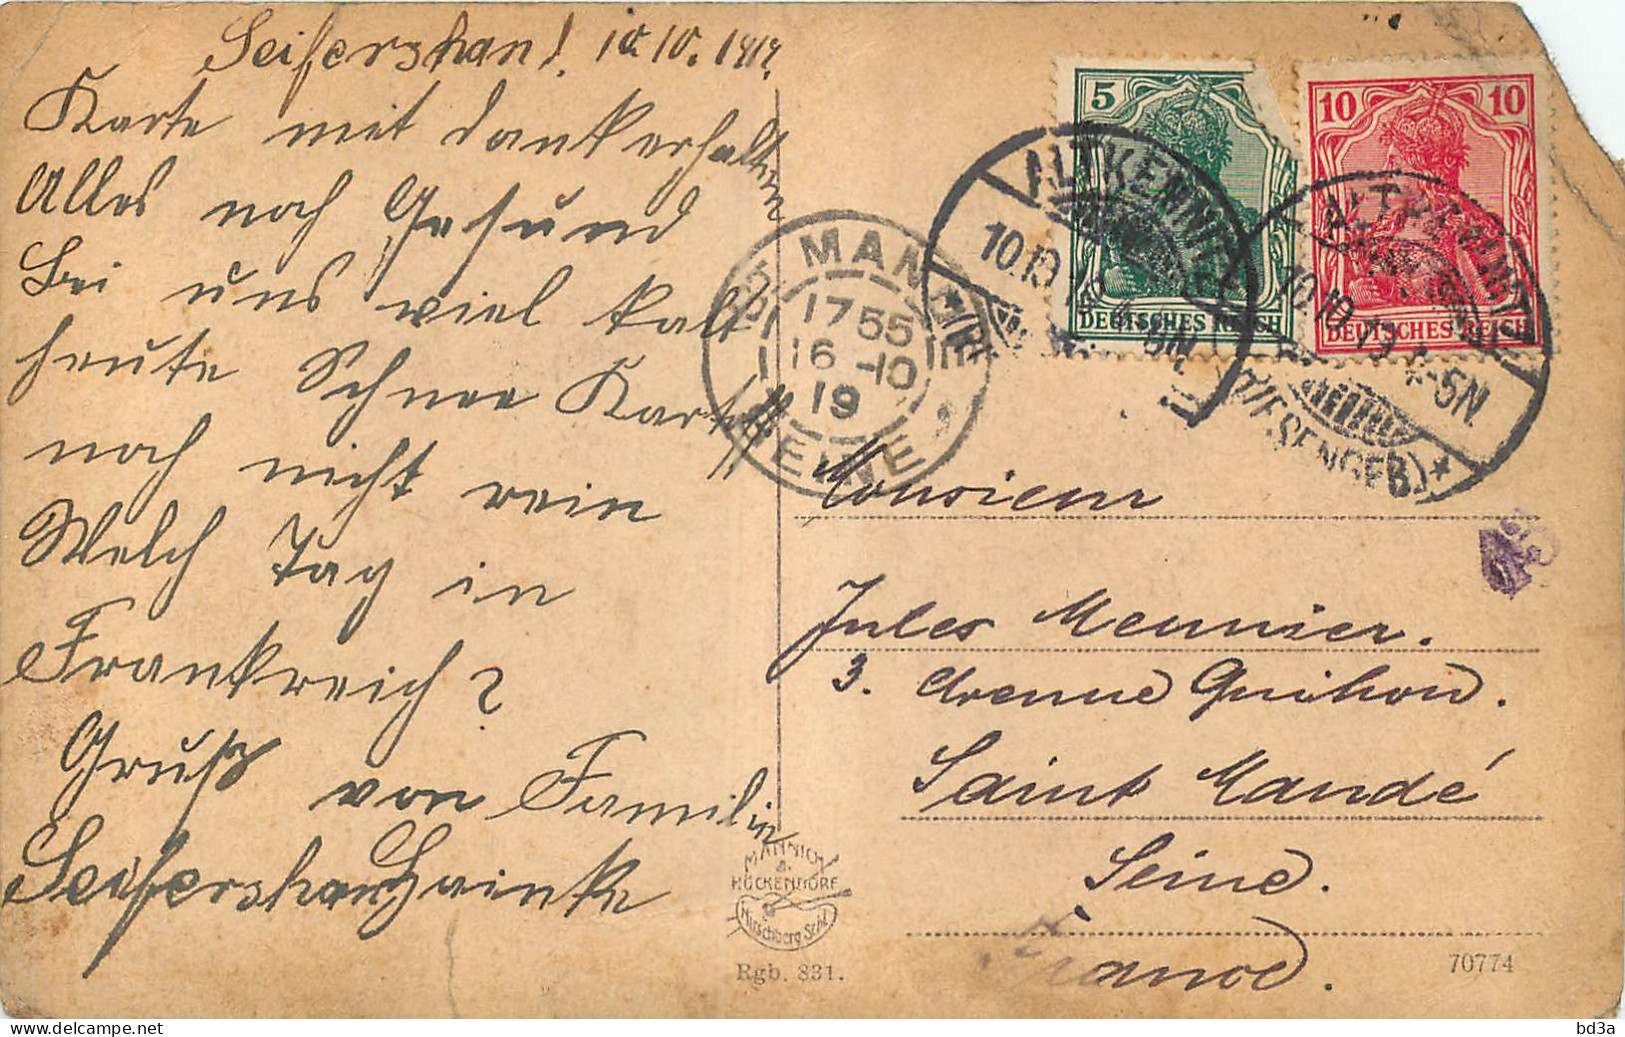 Seifershau d. 10.10.1919.
Karte mit dank erhalten
Alles noch Gesund
Bei uns viel kalt
heute Schnee Kartoff
noch nicht rein
Welch Tag in
Frankreich?
Gruß von Familie
Seifershau Hainke
5
DEUTSCHES REICH
10 10
DEUTSCHES REICH
ALTKEMNITZ
10.10.19.4-5N.
ALTKEMNITZ
10.10.19.4-5N.
(RIESENGEB.)
ST MANDE
17 55
16 -10
19
SEINE
Monsieur
Jules Meunier.
3. Avenue Quihou.
Saint Mandé
Seine.
France.
MANNICH
&
HÖCKENDORF
Hirschberg Schl.
Rgb. 831.
70774
bd3a